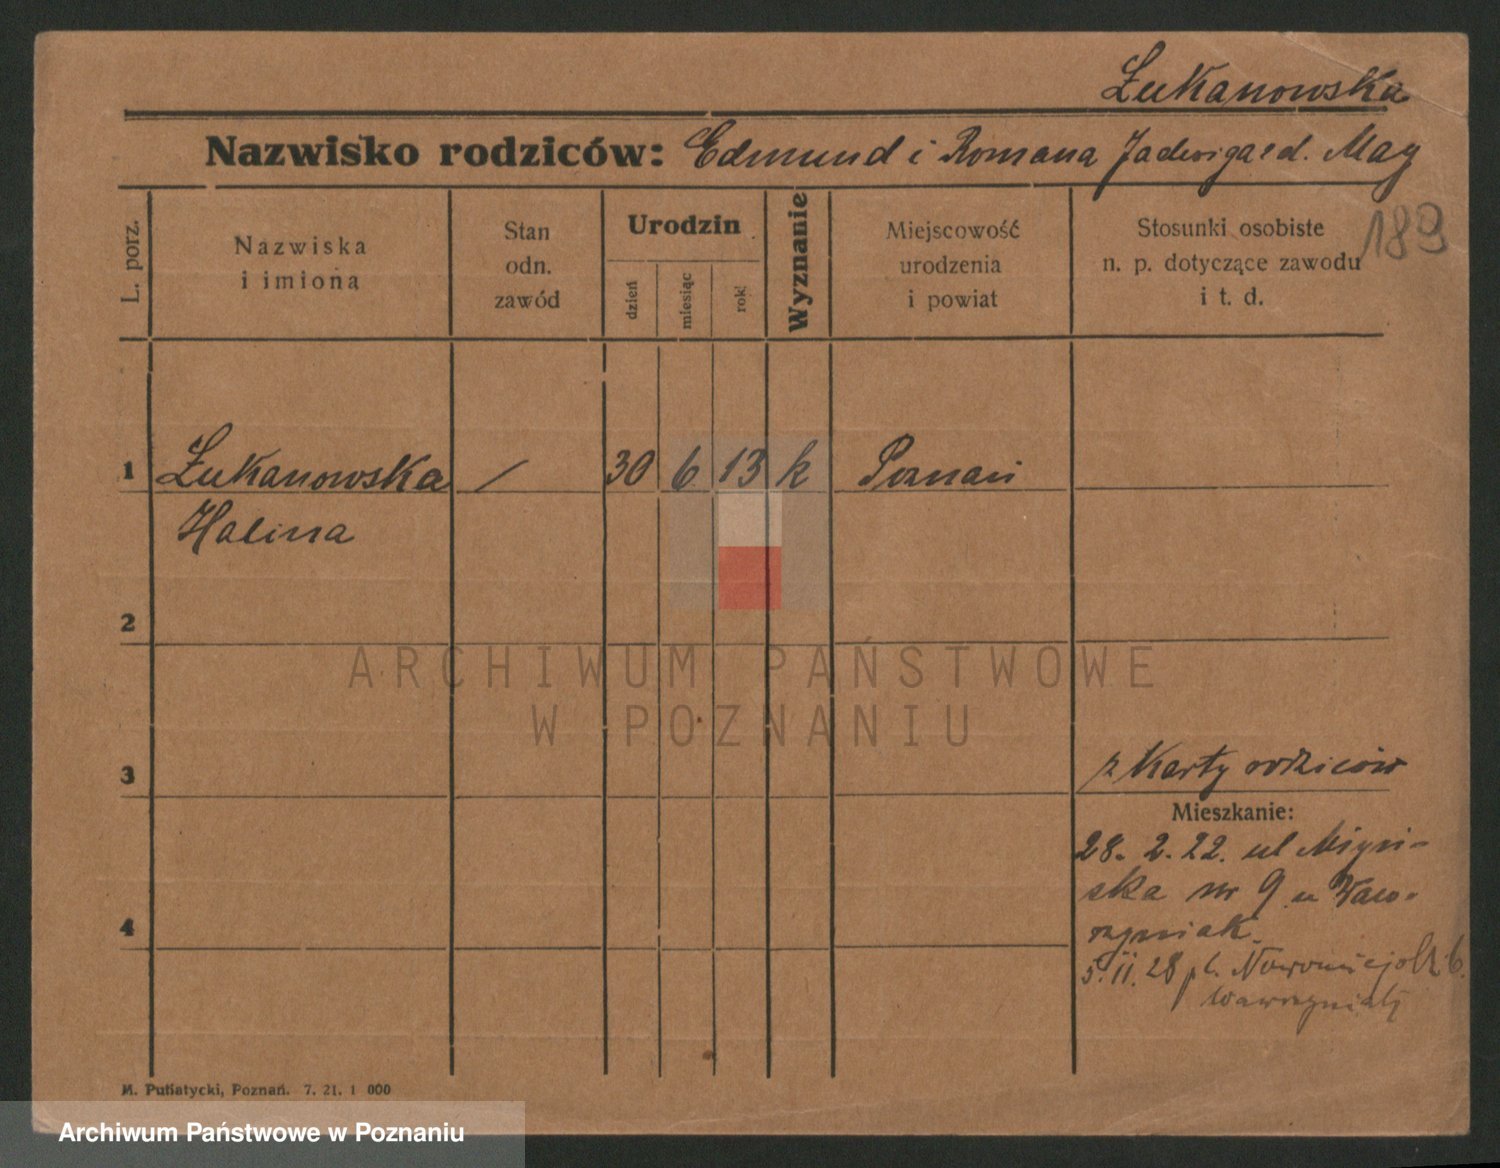 Łukanowska
Nazwisko rodziców: Edmund i Romana Jadwiga zd. May
189
L. porz.
Nazwiska
i imiona
Stan
odn.
zawód
Urodzin
dzień
miesiąc
rok
Wyznanie
Miejscowość
urodzenia
i powiat
Stosunki osobiste
n. p. dotyczące zawodu
i t. d.
1 Łukanowska / 30 6 13 k Poznań
Halina
2
ARCHIWUM PAŃSTWOWE
W POZNANIU
3
z Karty rodziców
Mieszkanie:
28. 2. 22. ul
ska nr 9 u Waw-
rzyniak
4
5. II. 28 pl. Nowomiejski 6.
Wawrzyniak
Pozn­ań. 7. 21. 1 000
Archiwum Państwowe w Poznaniu